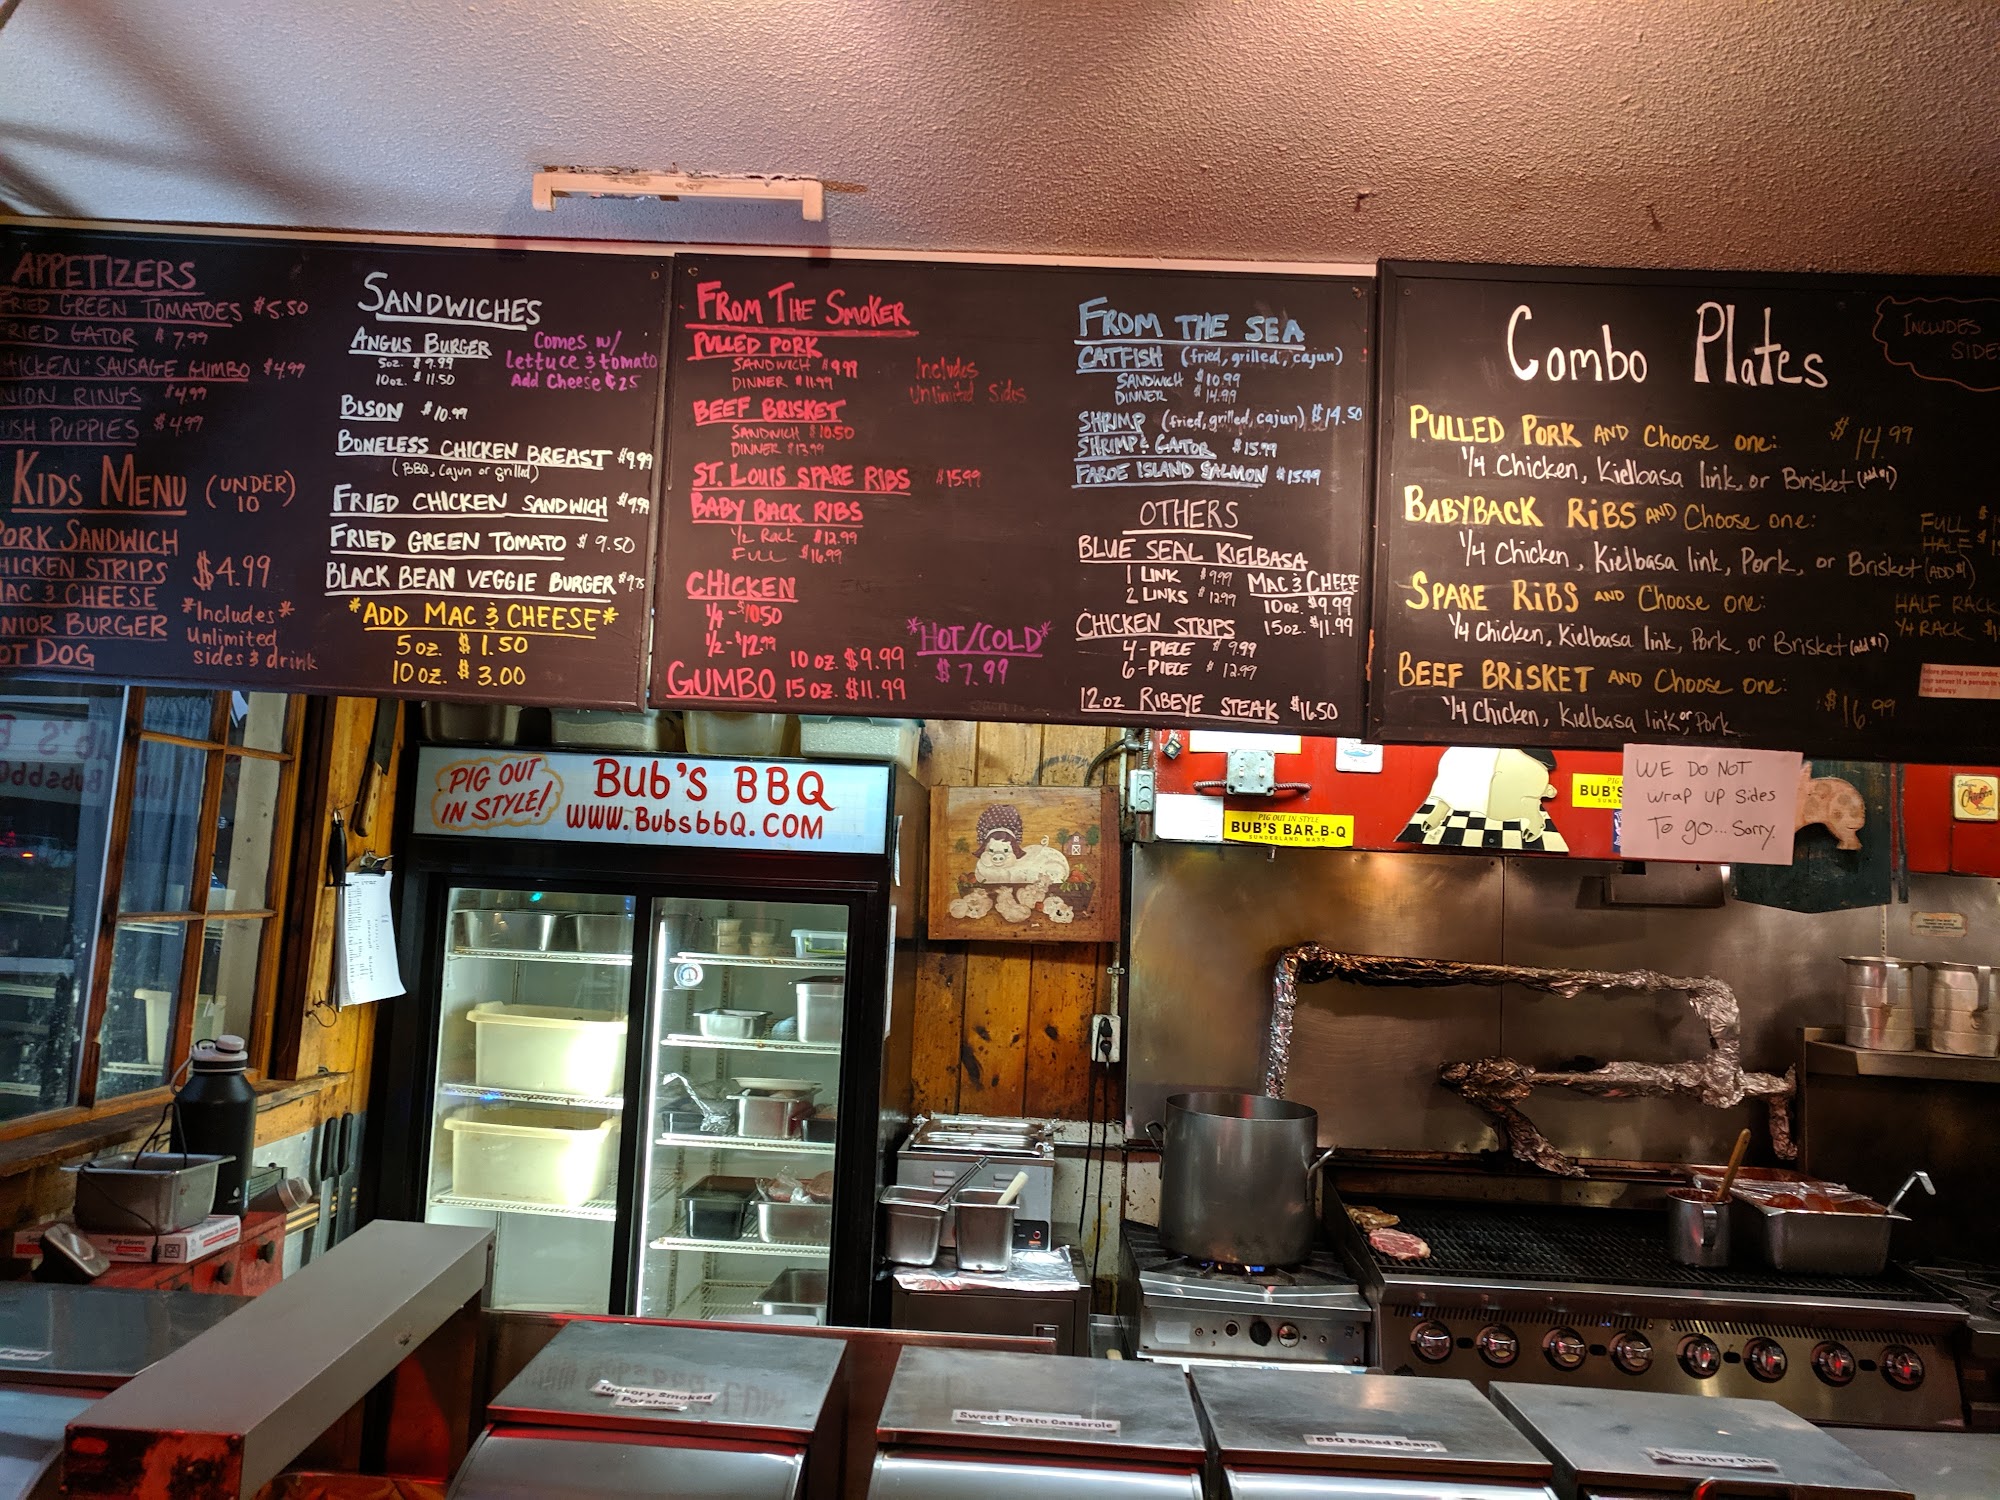 APPETIZERS
FRIED GREEN TOMATOES $5.50
FRIED GATOR $7.99
CHICKEN & SAUSAGE GUMBO $4.99
ONION RINGS $4.99
HUSH PUPPIES $4.99
KIDS MENU (UNDER 10)
PORK SANDWICH
CHICKEN STRIPS
MAC & CHEESE
JUNIOR BURGER
HOT DOG
$4.99
*Includes*
Unlimited
sides & drink
SANDWICHES
ANGUS BURGER
5oz. $9.99
10oz. $11.50
Comes w/
Lettuce & tomato
Add Cheese ¢25
BISON $10.99
BONELESS CHICKEN BREAST $9.99
(BBQ, cajun or grilled)
FRIED CHICKEN SANDWICH $9.99
FRIED GREEN TOMATO $9.50
BLACK BEAN VEGGIE BURGER $9.75
*ADD MAC & CHEESE*
5 oz. $1.50
10 oz. $3.00
FROM THE SMOKER
PULLED PORK
SANDWICH $9.99
DINNER $11.99
Includes
Unlimited Sides
BEEF BRISKET
SANDWICH $10.50
DINNER $13.99
ST. LOUIS SPARE RIBS $15.99
BABY BACK RIBS
1/2 Rack $12.99
FULL $16.99
CHICKEN
1/4 - $10.50
1/2 - $12.99
GUMBO
10 oz. $9.99
15 oz. $11.99
*HOT/COLD*
$7.99
FROM THE SEA
CATFISH (fried, grilled, cajun)
SANDWICH $10.99
DINNER $14.99
SHRIMP (fried, grilled, cajun) $14.50
SHRIMP & GATOR $15.99
FAROE ISLAND SALMON $15.99
OTHERS
BLUE SEAL KIELBASA
1 LINK $9.99
2 LINKS $12.99
MAC & CHEESE
10oz. $9.99
15oz. $11.99
CHICKEN STRIPS
4-PIECE $9.99
6-PIECE $12.99
12oz RIBEYE STEAK $16.50
Combo Plates
INCLUDES
SIDES
PULLED PORK AND Choose one: $14.99
1/4 Chicken, Kielbasa link, or Brisket (add $1)
BABYBACK RIBS AND Choose one:
FULL
HALF
1/4 Chicken, Kielbasa link, Pork, or Brisket (ADD $1)
SPARE RIBS AND Choose one:
HALF RACK
1/4 RACK
1/4 Chicken, Kielbasa link, Pork, or Brisket (add $1)
BEEF BRISKET AND Choose one: $16.99
1/4 Chicken, Kielbasa link or Pork
WE DO NOT
wrap up sides
To go... Sorry.
PIG OUT
IN STYLE!
BUB'S BBQ
WWW.BUBSBBQ.COM
PIG OUT IN STYLE
BUB'S BAR-B-Q
SUNDERLAND, MASS
BUB'S
Hickory Smoked
Potatoes
Sweet Potato Casserole
BBQ Baked Beans
Dirty Rice